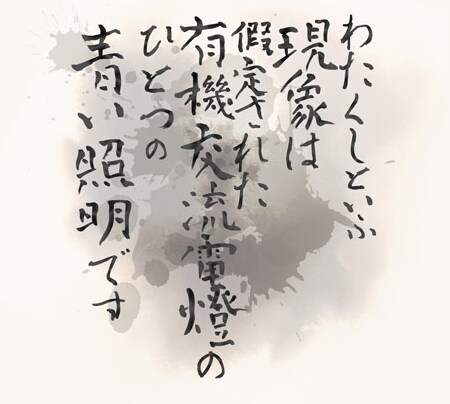 わたくしといふ
現象は
假定された
有機交流電燈の
ひとつの
青い照明です